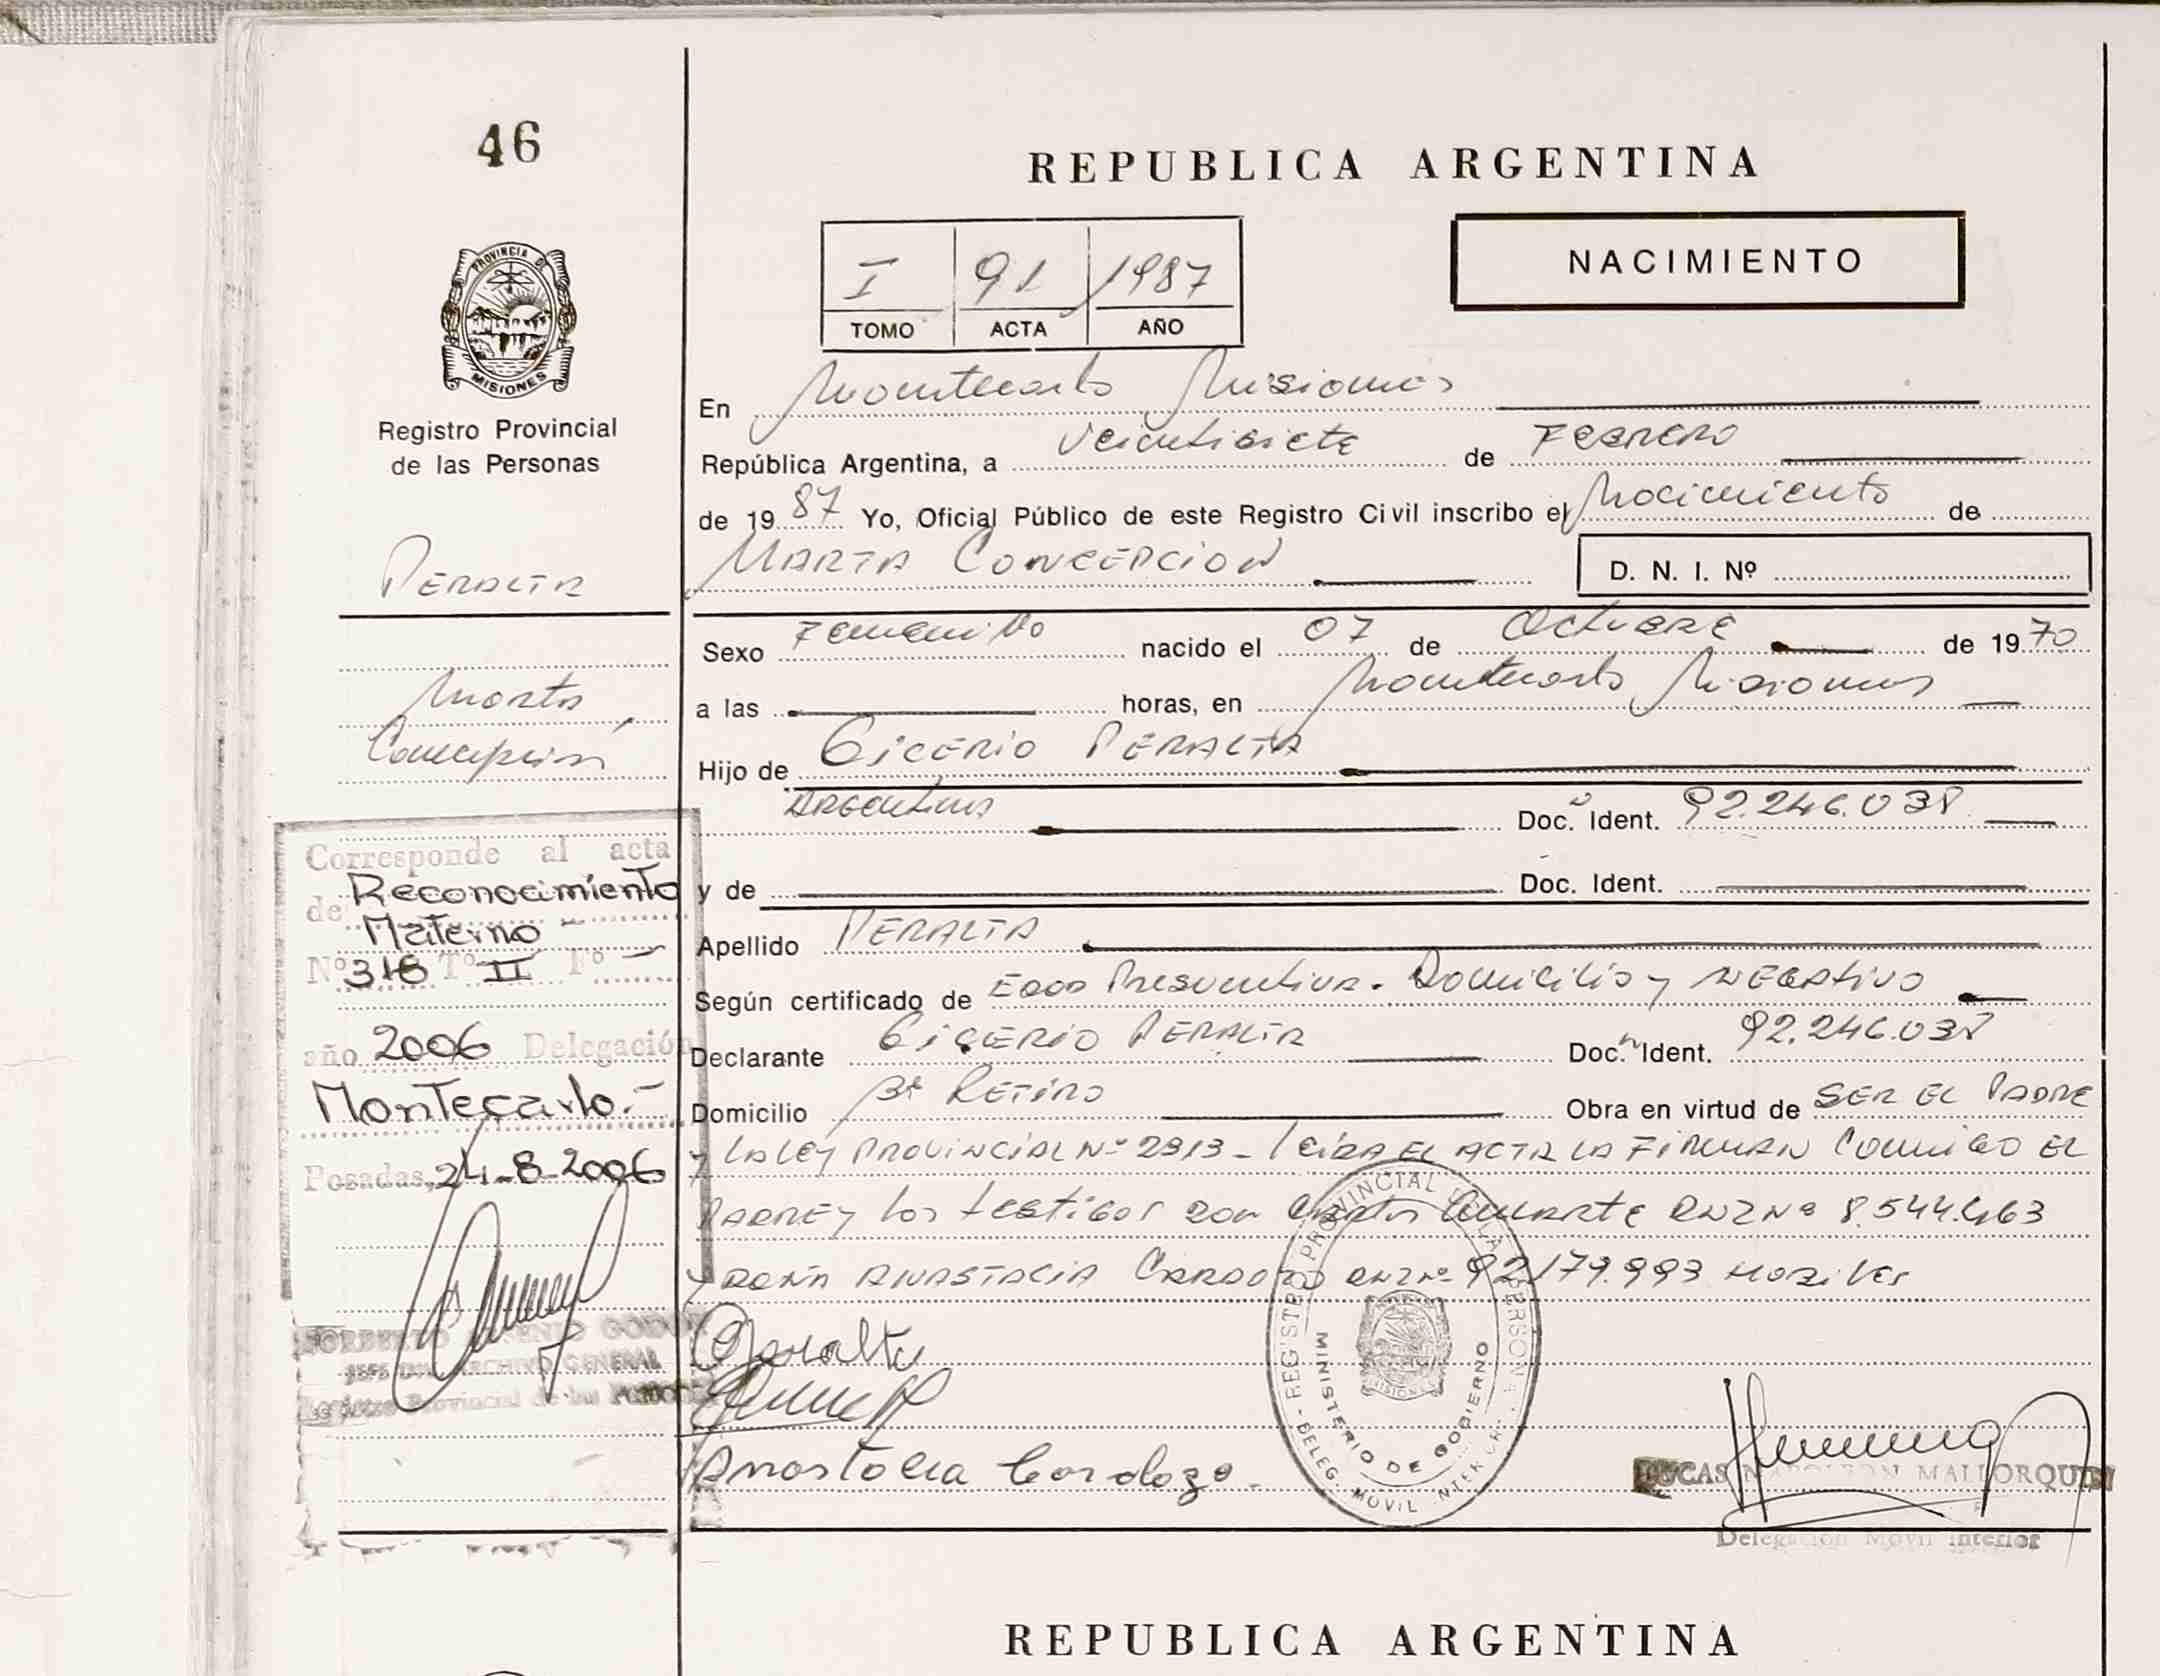 46
REPUBLICA ARGENTINA
NACIMIENTO
I 91 1987
TOMO ACTA AÑO
PROVINCIA DE
MISIONES
Registro Provincial
de las Personas
PERALTA
Marta
Concepción
En Montecarlo Misiones
República Argentina, a veintisiete de FEBRERO
de 19 87 Yo, Oficial Público de este Registro Civil inscribo el Nacimiento de
MARTA CONCEPCION D. N. I. Nº
Sexo Femenino nacido el 07 de Octubre de 19 70
a las horas, en Montecarlo Misiones
Hijo de PERALTA
Argentino Doc. Ident. 92.246.038
y de Doc. Ident.
Apellido PERALTA
Según certificado de Edad Presuntiva. Domicilio y NEGATIVO
Declarante PERALTA Doc. Ident. 92.246.038
Domicilio Bº RETIRO Obra en virtud de SER EL PADRE
y LA LEY PROVINCIAL Nº 2313 - leída EL ACTA LA FIRMAN Conmigo EL
PADRE y los testigos DON DNI Nº 8.544.463
y DOÑA ANASTACIA CARDOZO DNI Nº 92.179.993 HABILES
Peralta
Anastacia Cardozo
Corresponde al acta
de Reconocimiento
Materno -
Nº 318 Tº II Fº -
año 2006 Delegación
Montecarlo.-
Posadas, 24-8-2006
NORBERTO GODOY
JEFE DIV. ARCHIVO GENERAL
Registro Provincial de las Personas
REGISTRO PROVINCIAL DE LAS PERSONAS
MINISTERIO DE GOBIERNO
DELEG. MOVIL INTERIOR
LUCAS NAPOLEON MALLORQUIN
Delegación Movil Interior
REPUBLICA ARGENTINA